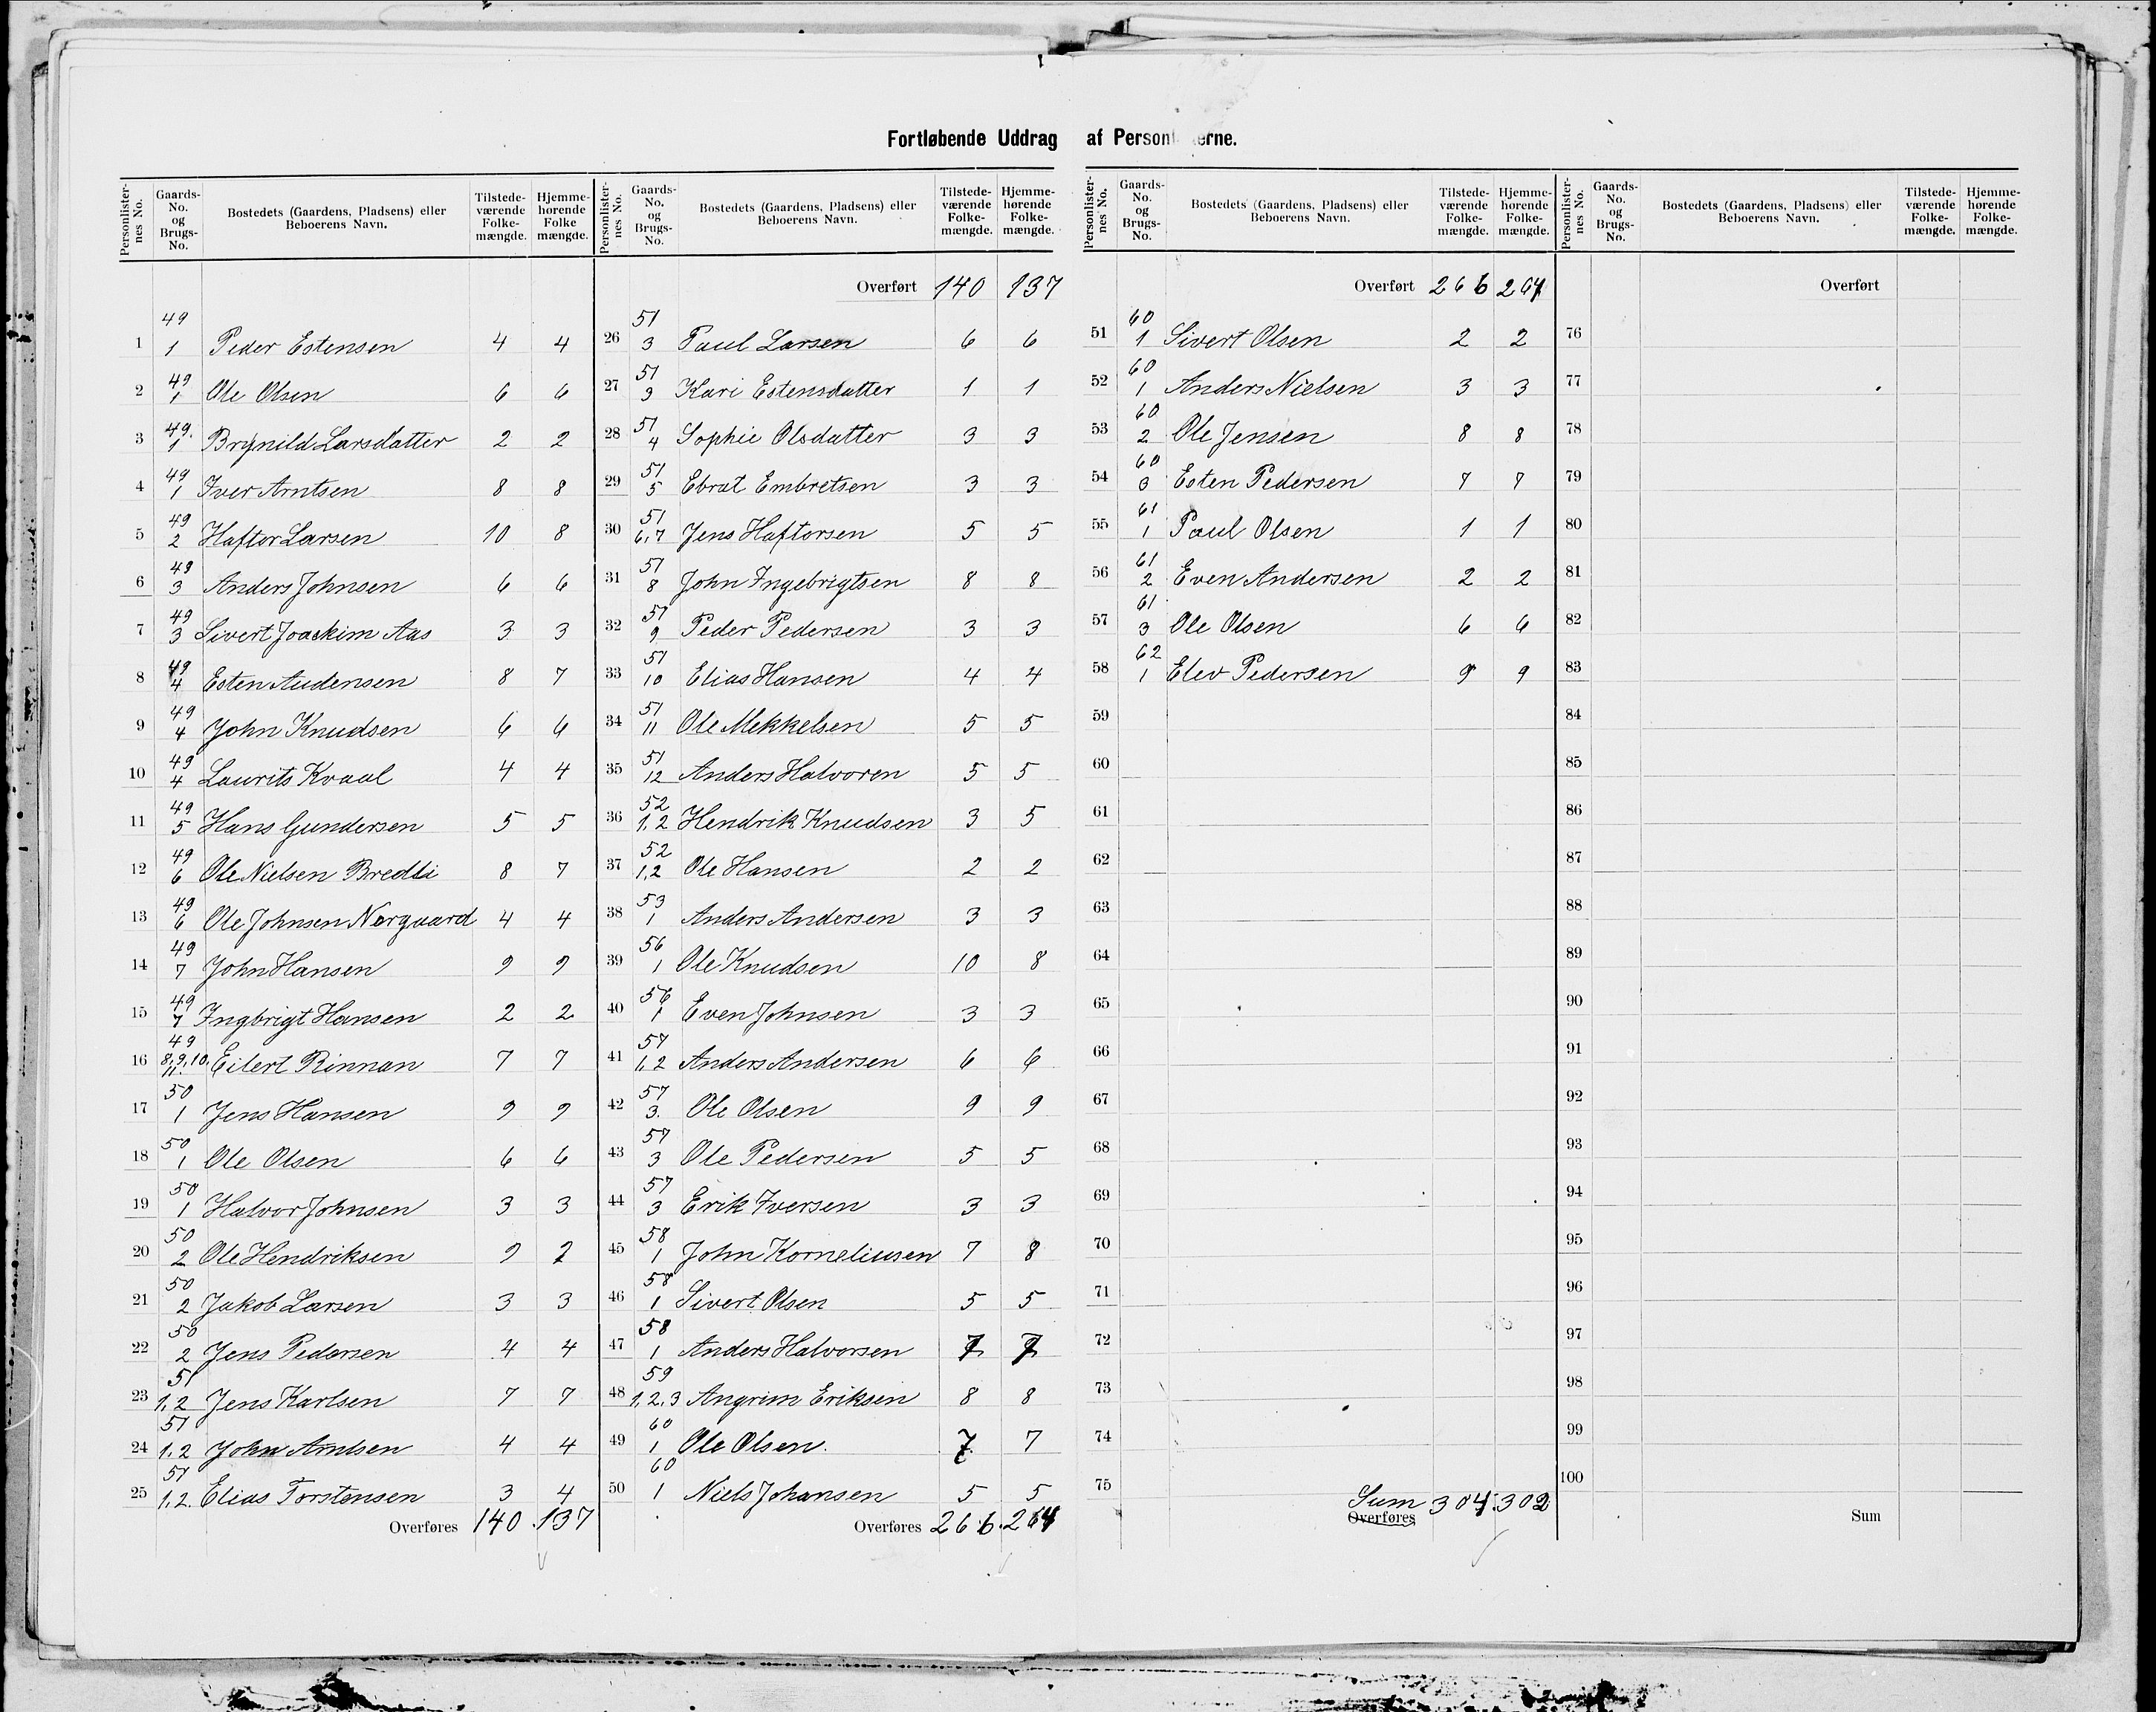 Fortløbende Uddrag af Person erne.
Personlister-nes No. Gaards-No. og Brugs-No. Bostedets (Gaardens, Pladsens) eller Beboerens Navn. Tilstede-værende Folke-mængde. Hjemme-hørende Folke mængde.
1 49 1 Peder Estensen 4 4
2 49 1 Ole Olsen 6 6
3 49. 1 Brynild Larsdatter 2 2
4 49 1 Iver Arntsen 8 8
5 49 2 Haftor Larsen 10 8
6 49 3 Anders Johnsen 6 6
7 49 3 Sivert Joackim Aas 3 3
8 49 4 Esten Audensen 8 7
9 49 4 John Knudsen 6 6
10 49 4 Laurits Kvaal 4 4
11 49 5 Hans Gundersen 5 5
12 49 6 Ole Nielsen Bredli 8 7
13 49 6 Ole Johnsen Norgaard 4 4
14 49 7 John Hansen 9 9
15 49 7 Ingbrigt Hansen 2 2
16 49 8,9,10,11 Eilert Rinnan 7 7
17 50 1 Jens Hansen 9 9
18 50 1 Ole Olsen 6 6
19 50 1 Halvor Johnsen 3 3
20 50 2 Ole Hendriksen 2 2
21 50 2 Jakob Larsen 3 3
22 50 2 Jens Pedersen 4 4
23 51 1,2 Jens Karlsen 7 7
24 51 1,2 John Arntsen 4 4
25 51 1,2. Elias Torstensen 3 4
Overføres 140 137
Personlister-nes No. Gaards-No. og Brugs-No. Bostedets (Gaardens, Pladsens) eller Beboerens Navn. Tilstede-værende Folke-mængde. Hjemme-hørende Folke-mængde.
Overført 140 137
26 51 3 Paul Larsen 6 6
27 51 3 Kari Estensdatter 1 1
28 51 4 Sophie Olsdatter 3 3
29 51 5 Ebrat Embretsen 3 3
30 51 6,7 Jens Haftorsen 5 5
31 51 8 John Ingebrigtsen 8 8
32 51 9 Peder Pedersen 3 3
33 51 10 Elias Hansen 4 4
34 51 11 Ole Mekkelsen 5 5
35 51 12 Anders Halvoren 5 5
36 52 1,2 Hendrik Knudsen 3 5
37 52 1,2 Ole Hansen 2 2
38 53 1 Anders Andersen 3 3
39 56 1 Ole Knudsen 10 8
40 56 1 Even Johnsen 3 3
41 57 1,2 Anders Andersen 6 6
42 57 3. Ole Olsen 9 9
43 57 3 Ole Pedersen 5 5
44 57 3 Erik Iversen 3 3
45 58 1 John Korneliusen 7 8
46 58 1 Sivert Olsen 5 5
47 58 1 Anders Halvorsen 7 7
48 59 1,2,3 Angrim Eriksen 8 8
49 60 1 Ole Olsen. 7 7
50 60 1 Niels Johansen 5 5
Overføres 266. 264
Personlister-nes No. Gaards-No. og Brugs-No. Bostedets (Gaardens, Pladsens) eller Beboerens Navn. Tilstede-værende Folke-mængde. Hjemme-hørende Folke-mængde.
Overført 266 264
51 60 1 Sivert Olsen 2 2
52 60 1 Anders Nielsen 3 3
53 60 2 Ole Jensen 8 8
54 60 3 Esten Pedersen 7 7
55 61 1 Paul Olsen 1 1
56 61 2 Even Andersen 2 2
57 61 3 Ole Olsen 6 6
58 62 1 Elev Pedersen 9 9
59
60
61
62
63
64
65
66
67
68
69
70
71
72
73
74
75
Sum 304. 302
Overføres
Personlister-nes No. Gaards-No. og Brugs-No. Bostedets (Gaardens, Pladsens) eller Beboerens Navn. Tilstede-værende Folke-mængde. Hjemme-hørende Folke-mængde.
Overført
76
77
78
79
80
81
82
83
84
85
86
87
88
89
90
91
92
93
94
95
96
97
98
99
100
Sum